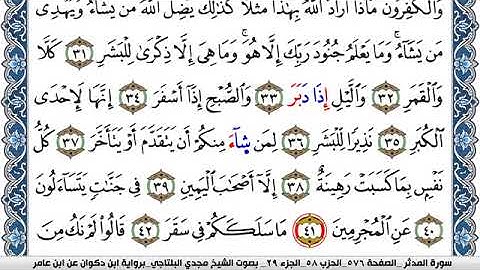 وَالْكَٰفِرُونَ مَاذَآ أَرَادَ اللَّهُ بِهَٰذَا مَثَلًا كَذَٰلِكَ يُضِلُّ اللَّهُ مَن يَشَآءُ وَيَهْدِى
مَن يَشَآءُ وَمَا يَعْلَمُ جُنُودَ رَبِّكَ إِلَّا هُوَ وَمَا هِىَ إِلَّا ذِكْرَىٰ لِلْبَشَرِ ٣١ كَلَّا
وَالْقَمَرِ ٣٢ وَالَّيْلِ إِذَا دَبَرَ ٣٣ وَالصُّبْحِ إِذَآ أَسْفَرَ ٣٤ إِنَّهَا لَإِحْدَى
الْكُبَرِ ٣٥ نَذِيرًا لِّلْبَشَرِ ٣٦ لِمَن شَآءَ مِنكُمْ أَن يَتَقَدَّمَ أَوْ يَتَأَخَّرَ ٣٧ كُلُّ
نَفْسٍ بِمَا كَسَبَتْ رَهِينَةٌ ٣٨ إِلَّآ أَصْحَٰبَ الْيَمِينِ ٣٩ فِى جَنَّٰتٍ يَتَسَآءَلُونَ
٤٠ عَنِ الْمُجْرِمِينَ ٤١ مَا سَلَكَكُمْ فِى سَقَرَ ٤٢ قَالُوا لَمْ نَكُ مِنَ
سورة المدثر_الصفحة ٥٧٦_الحزب ٥٨_الجزء ٢٩_ بصوت الشيخ مجدي البلتاجي_برواية ابن ذكوان عن ابن عامر